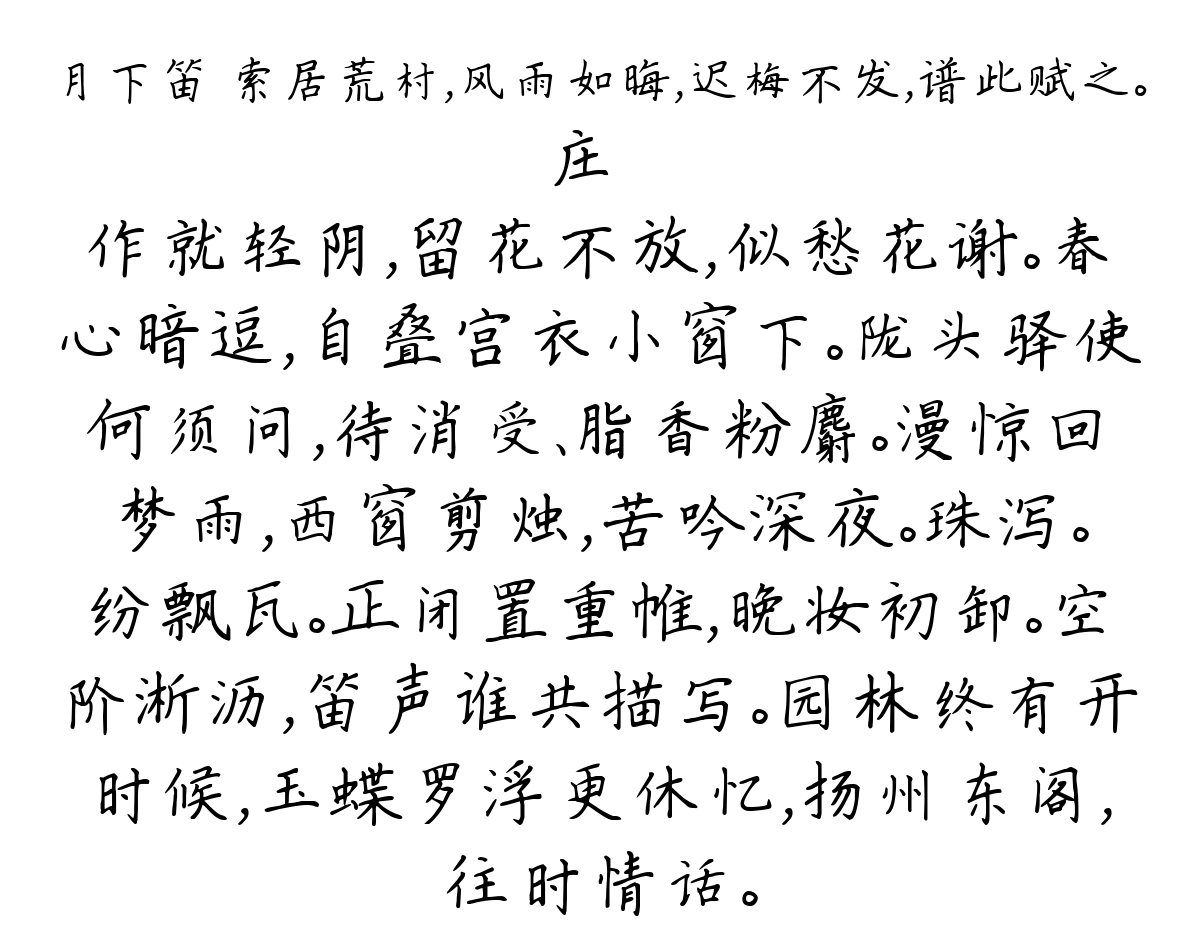 月下笛 索居荒村,风雨如晦,迟梅不发,谱此赋之。
庄
作就轻阴,留花不放,似愁花谢。春
心暗逗,自叠宫衣小窗下。陇头驿使
何须问,待消受、脂香粉麝。漫惊回
梦雨,西窗剪烛,苦吟深夜。珠泻。
纷飘瓦。正闭置重帷,晚妆初卸。空
阶淅沥,笛声谁共描写。园林终有开
时候,玉蝶罗浮更休忆,扬州东阁,
往时情话。